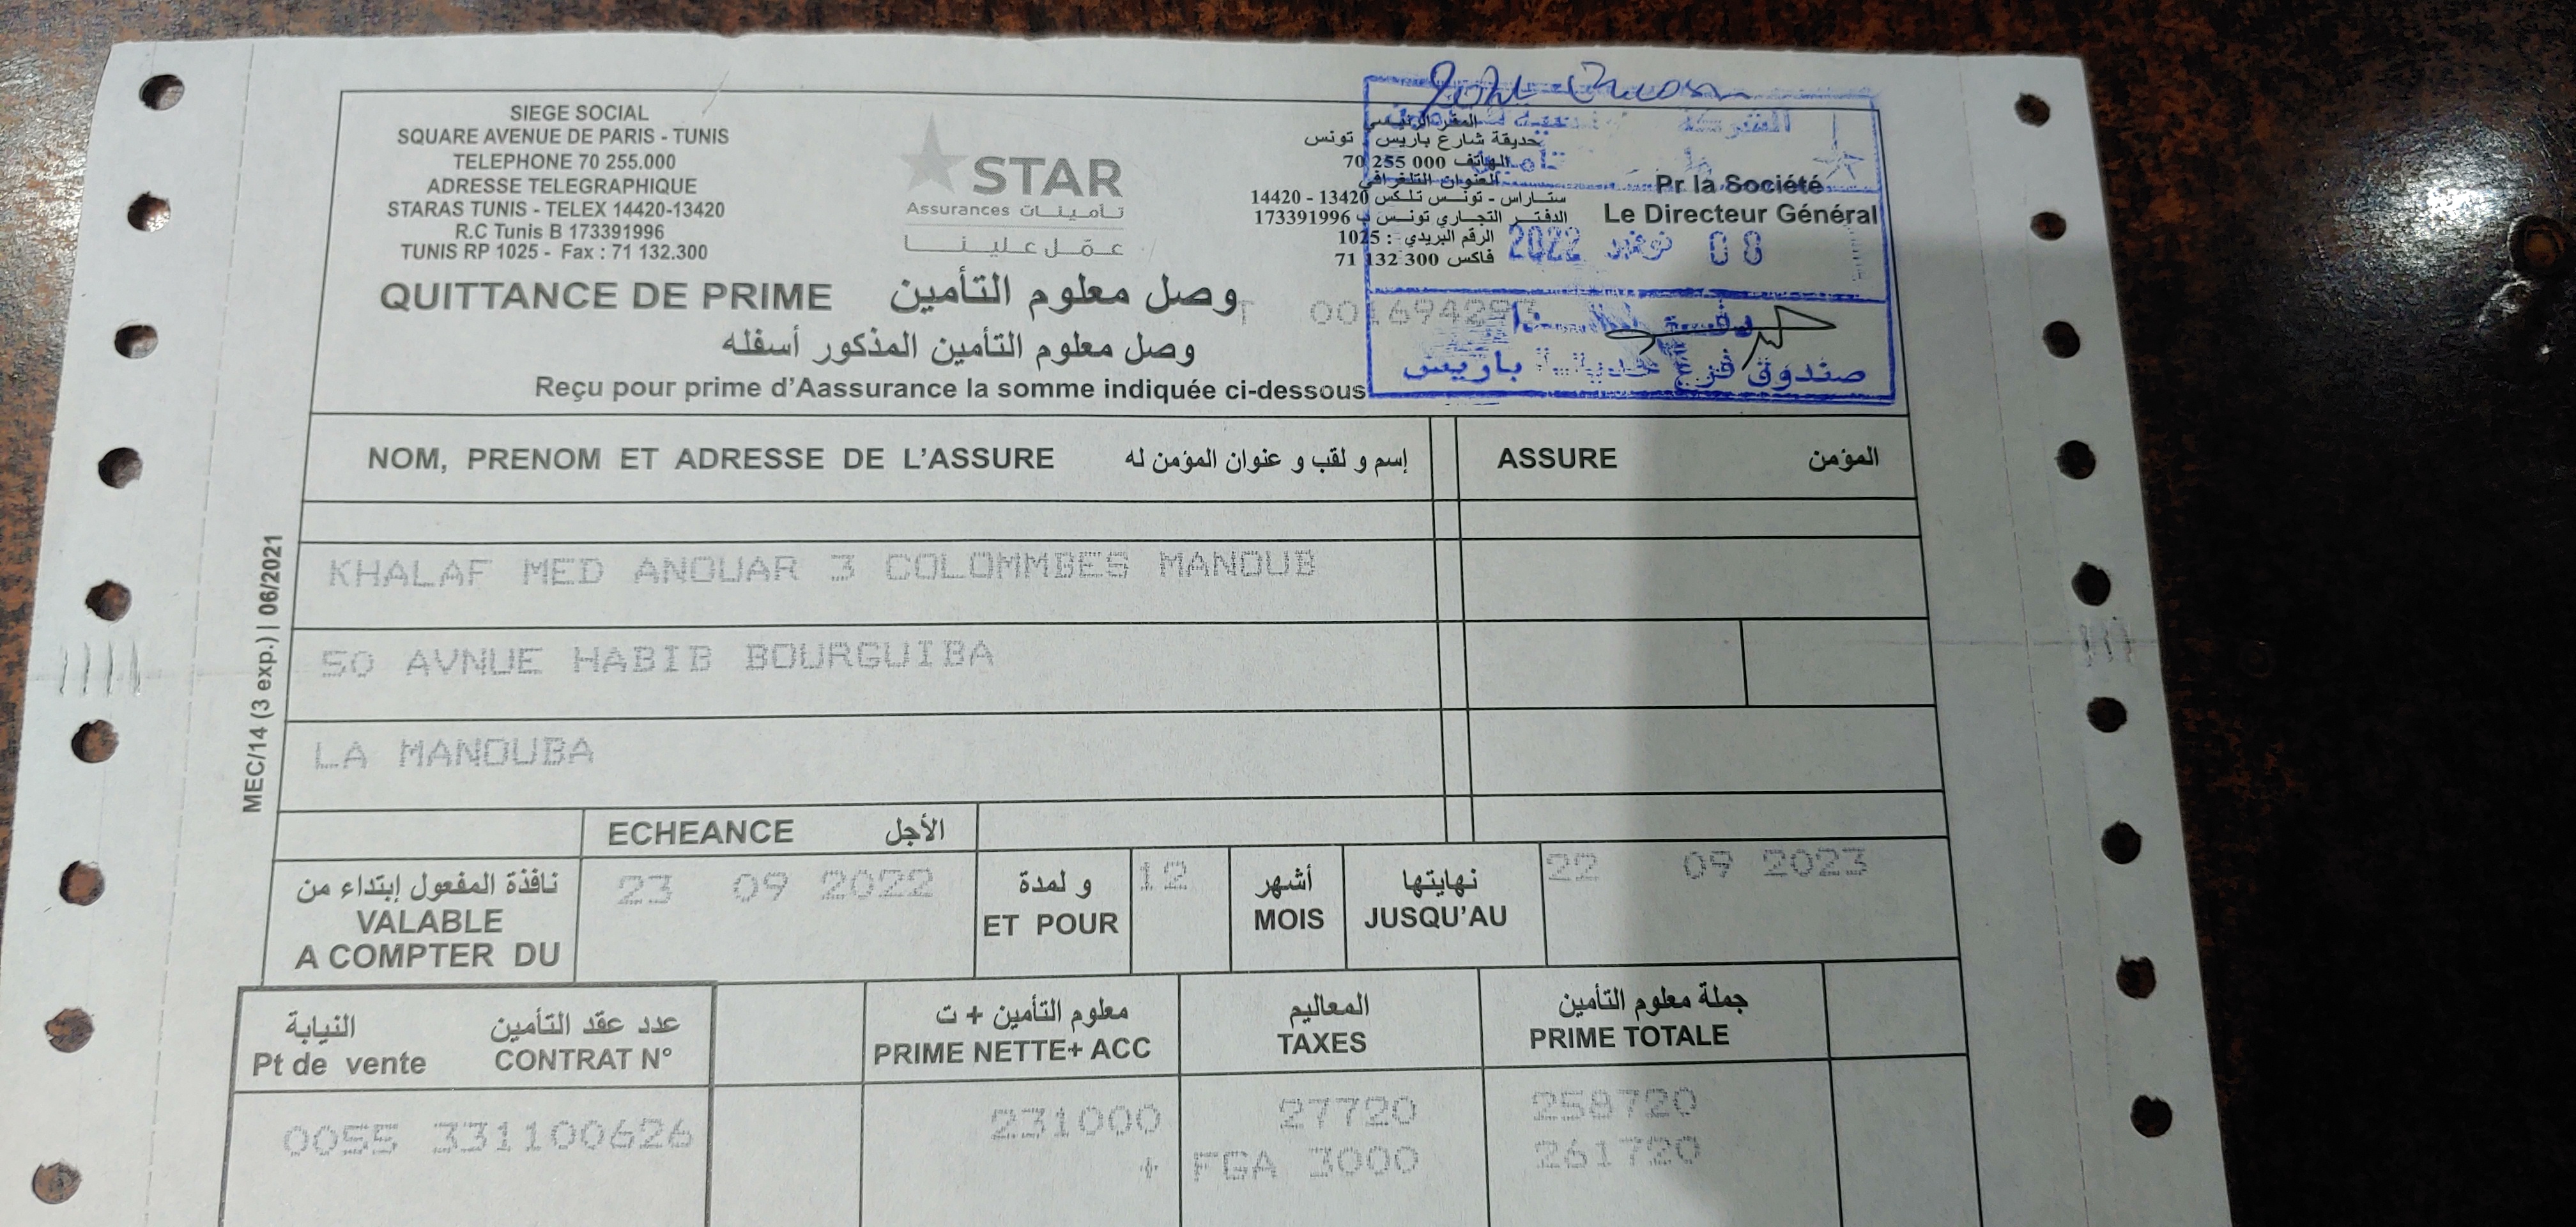 SIEGE SOCIAL
SQUARE AVENUE DE PARIS - TUNIS
TELEPHONE 70 255.000
ADRESSE TELEGRAPHIQUE
STARAS TUNIS - TELEX 14420-13420
R.C Tunis B 173391996
TUNIS RP 1025 - Fax : 71 132.300
STAR
Assurances تأمينات
عمّل علينا
المقر الرئيسي
حديقة شارع باريس - تونس
الهاتف 000 255 70
العنوان التلغرافي
ستاراس - تونس تلكس 13420 - 14420
الدفتر التجاري تونس ب 173391996
الرقم البريدي : 1025
فاكس 300 132 71
Pr la Société
Le Directeur Général
08 نوفمبر 2022
صندوق فرع باريس
QUITTANCE DE PRIME وصل معلوم التأمين
وصل معلوم التأمين المذكور أسفله
Reçu pour prime d'Aassurance la somme indiquée ci-dessous
NOM, PRENOM ET ADRESSE DE L'ASSURE إسم و لقب و عنوان المؤمن له
ASSURE المؤمن
KHALAF MED ANOUAR 3 COLOMMBES MANOUB
50 AVNUE HABIB BOURGUIBA
LA MANOUBA
MEC/14 (3 exp.) | 06/2021
ECHEANCE الأجل
نافذة المفعول إبتداء من
VALABLE
A COMPTER DU
23 09 2022
و لمدة
ET POUR
12
أشهر
MOIS
نهايتها
JUSQU'AU
22 09 2023
النيابة
Pt de vente
عدد عقد التأمين
CONTRAT N°
معلوم التأمين + ت
PRIME NETTE+ ACC
المعاليم
TAXES
جملة معلوم التأمين
PRIME TOTALE
0055 331100626
231000 27720 258720
+ FGA 3000 261720